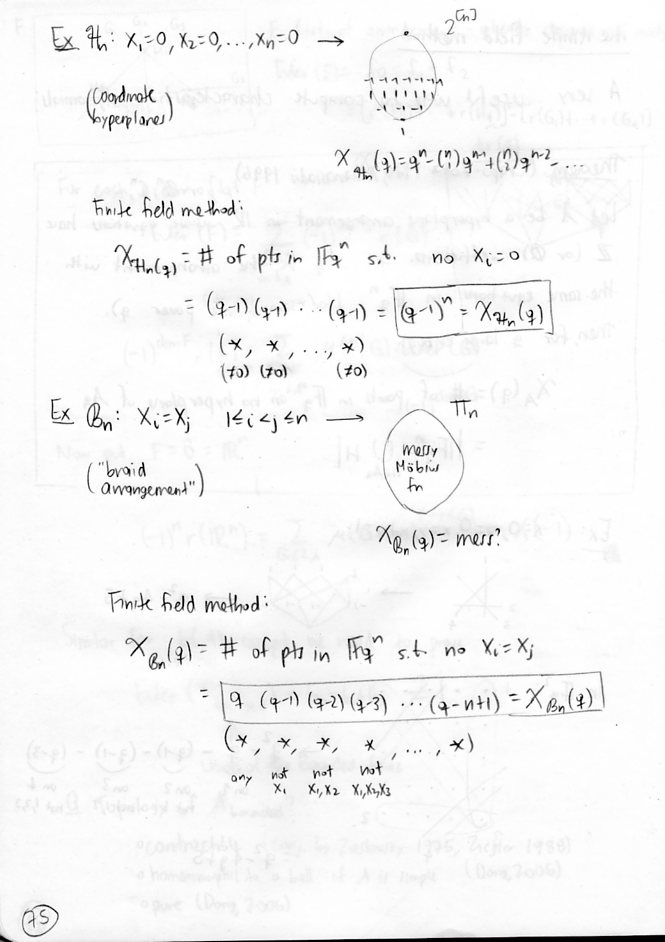 Ex ℋn: x₁=0, x₂=0, ..., xn=0 → 2^[n]
(coordinate hyperplanes)
χ_ℋn(q) = qⁿ - (n 1)qⁿ⁻¹ + (n 2)qⁿ⁻² - ...
Finite field method:
χ_ℋn(q) = # of pts in 𝔽qⁿ s.t. no xᵢ=0
= (q-1)(q-1) ... (q-1) = (q-1)ⁿ = χ_ℋn(q)
(*, *, ..., *)
(≠0) (≠0) (≠0)
Ex Bn: xᵢ=xⱼ 1≤i<j≤n → Πn
("braid arrangement")
messy
Möbius
fn
χ_Bn(q) = mess?
Finite field method:
χ_Bn(q) = # of pts in 𝔽qⁿ s.t. no xᵢ=xⱼ
= q (q-1)(q-2)(q-3) ... (q-n+1) = χ_Bn(q)
(*, *, *, *, ..., *)
any not not not
x₁ x₁,x₂ x₁,x₂,x₃
75